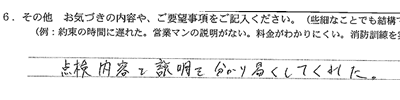 6．その他　お気づきの内容や、ご要望事項をご記入ください。（些細なことでも結構で
（例：約束の時間に遅れた。営業マンの説明がない。料金がわかりにくい。消防訓練を実
点検内容を説明を分かり易くしてくれた。